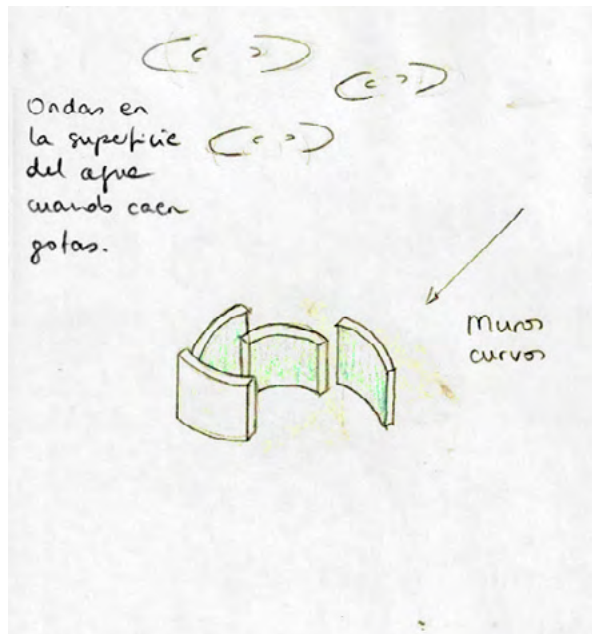 Ondas en
la superficie
del agua
cuando caen
gotas.
Muros
curvos